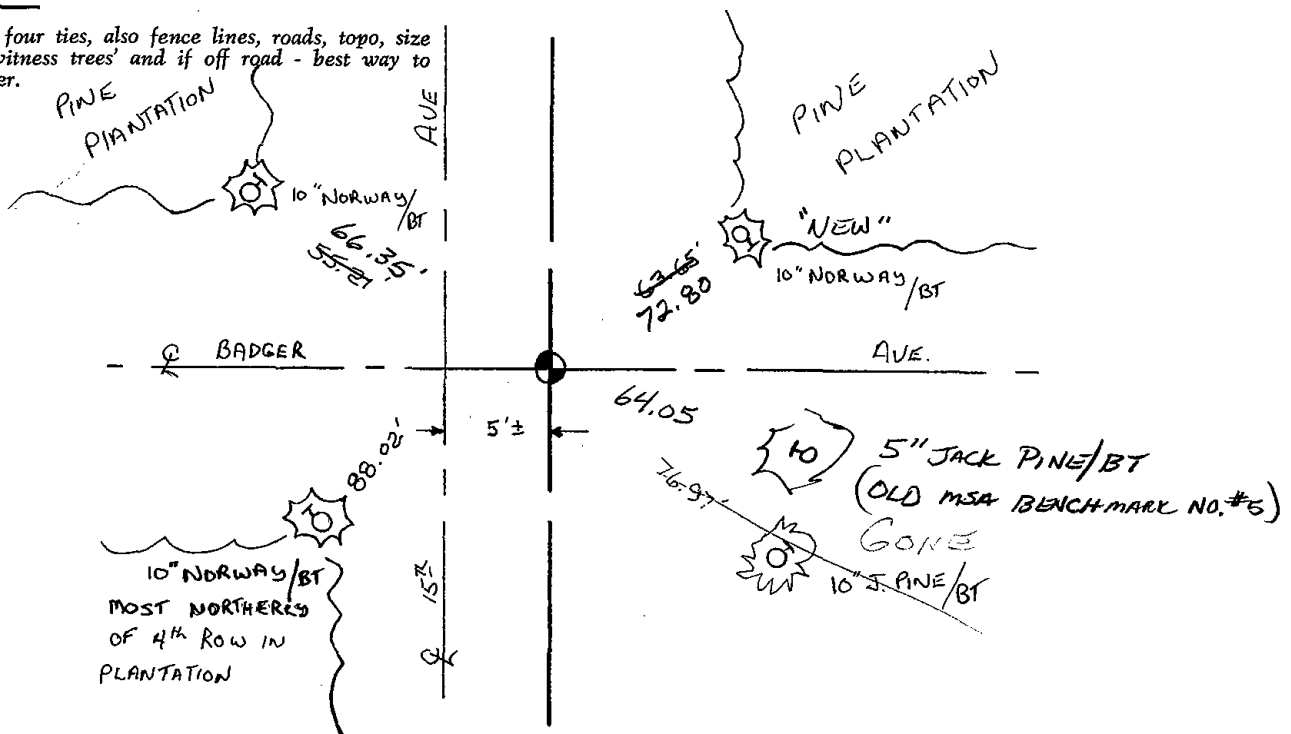 four ties, also fence lines, roads, topo, size
witness trees' and if off road - best way to
er.
PINE
PLANTATION
AVE
PINE
PLANTATION
10" NORWAY/BT
66.35'
55.21
"NEW"
10" NORWAY/BT
63.65'
72.80
BADGER
AVE.
64.05
5'±
88.02'
5" JACK PINE/BT
(OLD MSA BENCHMARK NO. #5)
76.97'
GONE
10" J. PINE/BT
10" NORWAY/BT
MOST NORTHERLY
OF 4th ROW IN
PLANTATION
15th